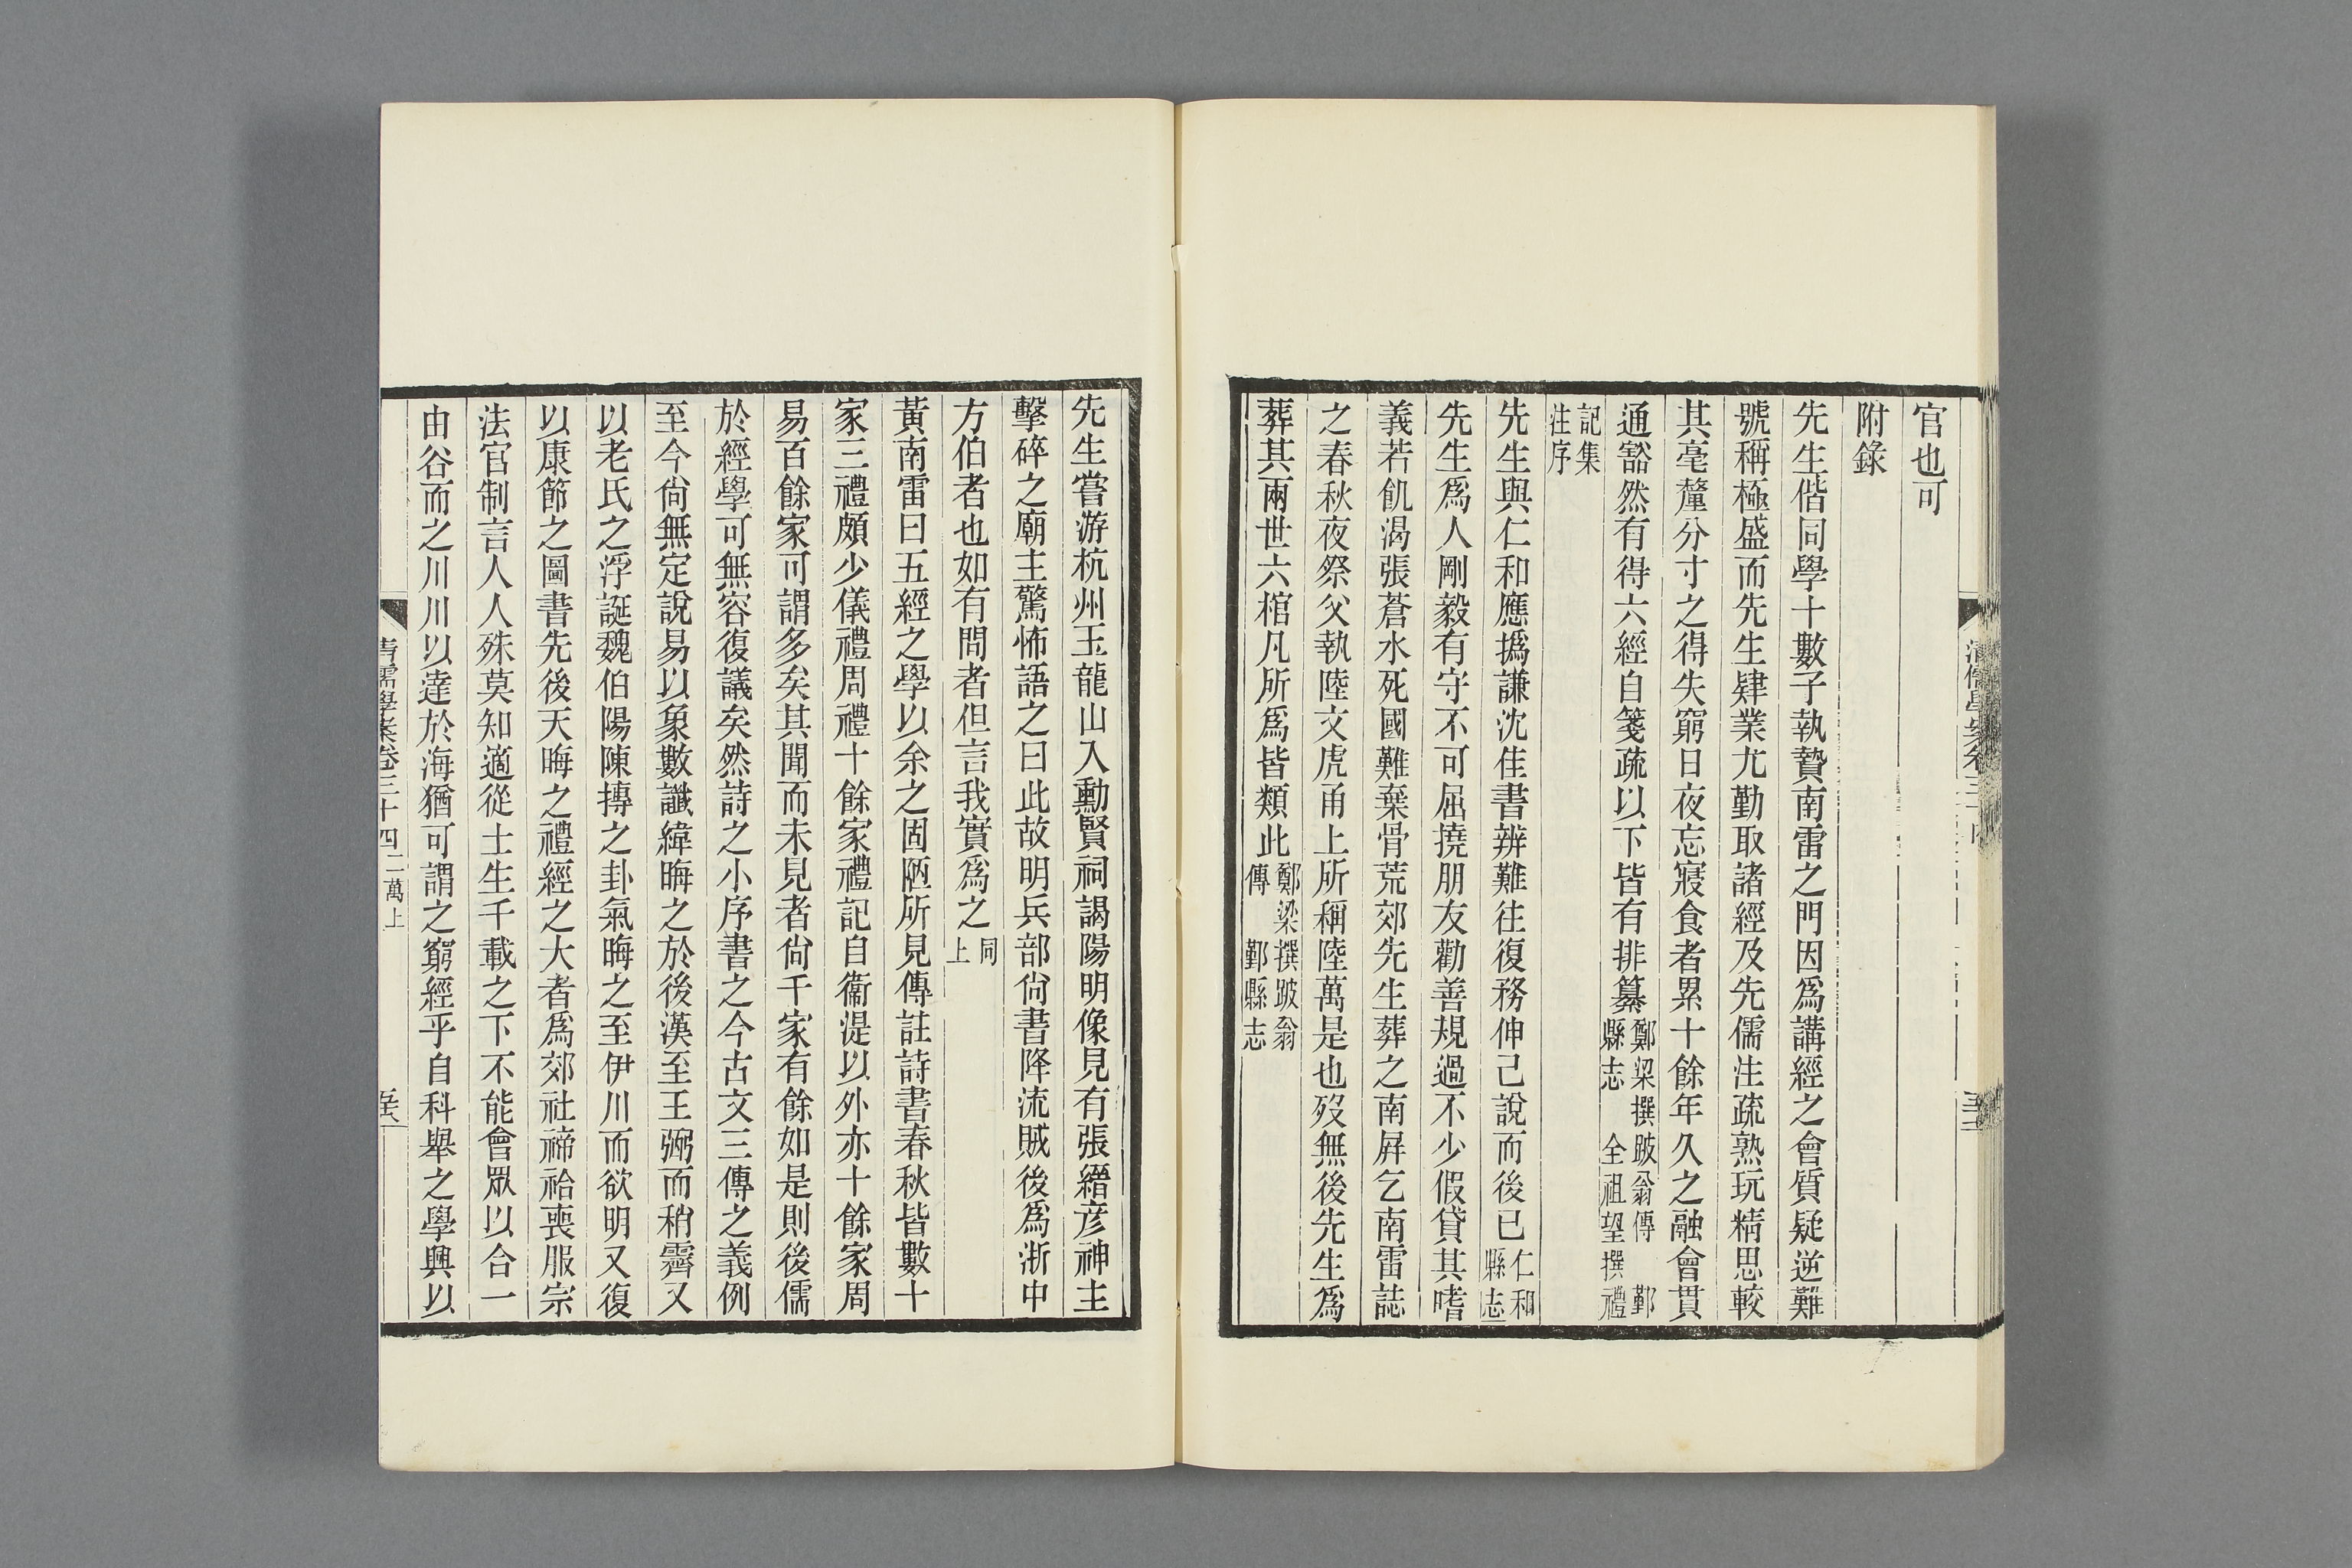 官也可
附錄
先生偕同學十數子執贄南雷之門因爲講經之會質疑逆難
號稱極盛而先生肄業尤勤取諸經及先儒注疏熟玩精思較
其毫釐分寸之得失窮日夜忘寢食者累十餘年久之融會貫
通豁然有得六經自箋疏以下皆有排纂鄭梁撰跛翁傳 鄞縣志 全祖望撰禮
記集注序
先生與仁和應撝謙沈佳書辨難往復務伸己說而後已仁和縣志
先生爲人剛毅有守不可屈撓朋友勸善規過不少假貸其嗜
義若飢渴張蒼水死國難棄骨荒郊先生葬之南屛乞南雷誌
之春秋夜祭父執陸文虎甬上所稱陸萬是也歿無後先生爲
葬其兩世六棺凡所爲皆類此鄭梁撰跛翁傳 鄞縣志
先生嘗游杭州玉龍山入勳賢祠謁陽明像見有張縉彦神主
擊碎之廟主驚怖語之曰此故明兵部尙書降流賊後爲浙中
方伯者也如有問者但言我實爲之同上
黃南雷曰五經之學以余之固陋所見傳註詩書春秋皆數十
家三禮頗少儀禮周禮十餘家禮記自衞湜以外亦十餘家周
易百餘家可謂多矣其聞而未見者尙千家有餘如是則後儒
於經學可無容復議矣然詩之小序書之今古文三傳之義例
至今尙無定說易以象數讖緯晦之於後漢至王弼而稍霽又
以老氏之浮誕魏伯陽陳摶之卦氣晦之至伊川而欲明又復
以康節之圖書先後天晦之禮經之大者爲郊社禘祫喪服宗
法官制言人人殊莫知適從士生千載之下不能會眾以合一
由谷而之川川以達於海猶可謂之窮經乎自科舉之學興以
清儒學案卷三十四 二萬上